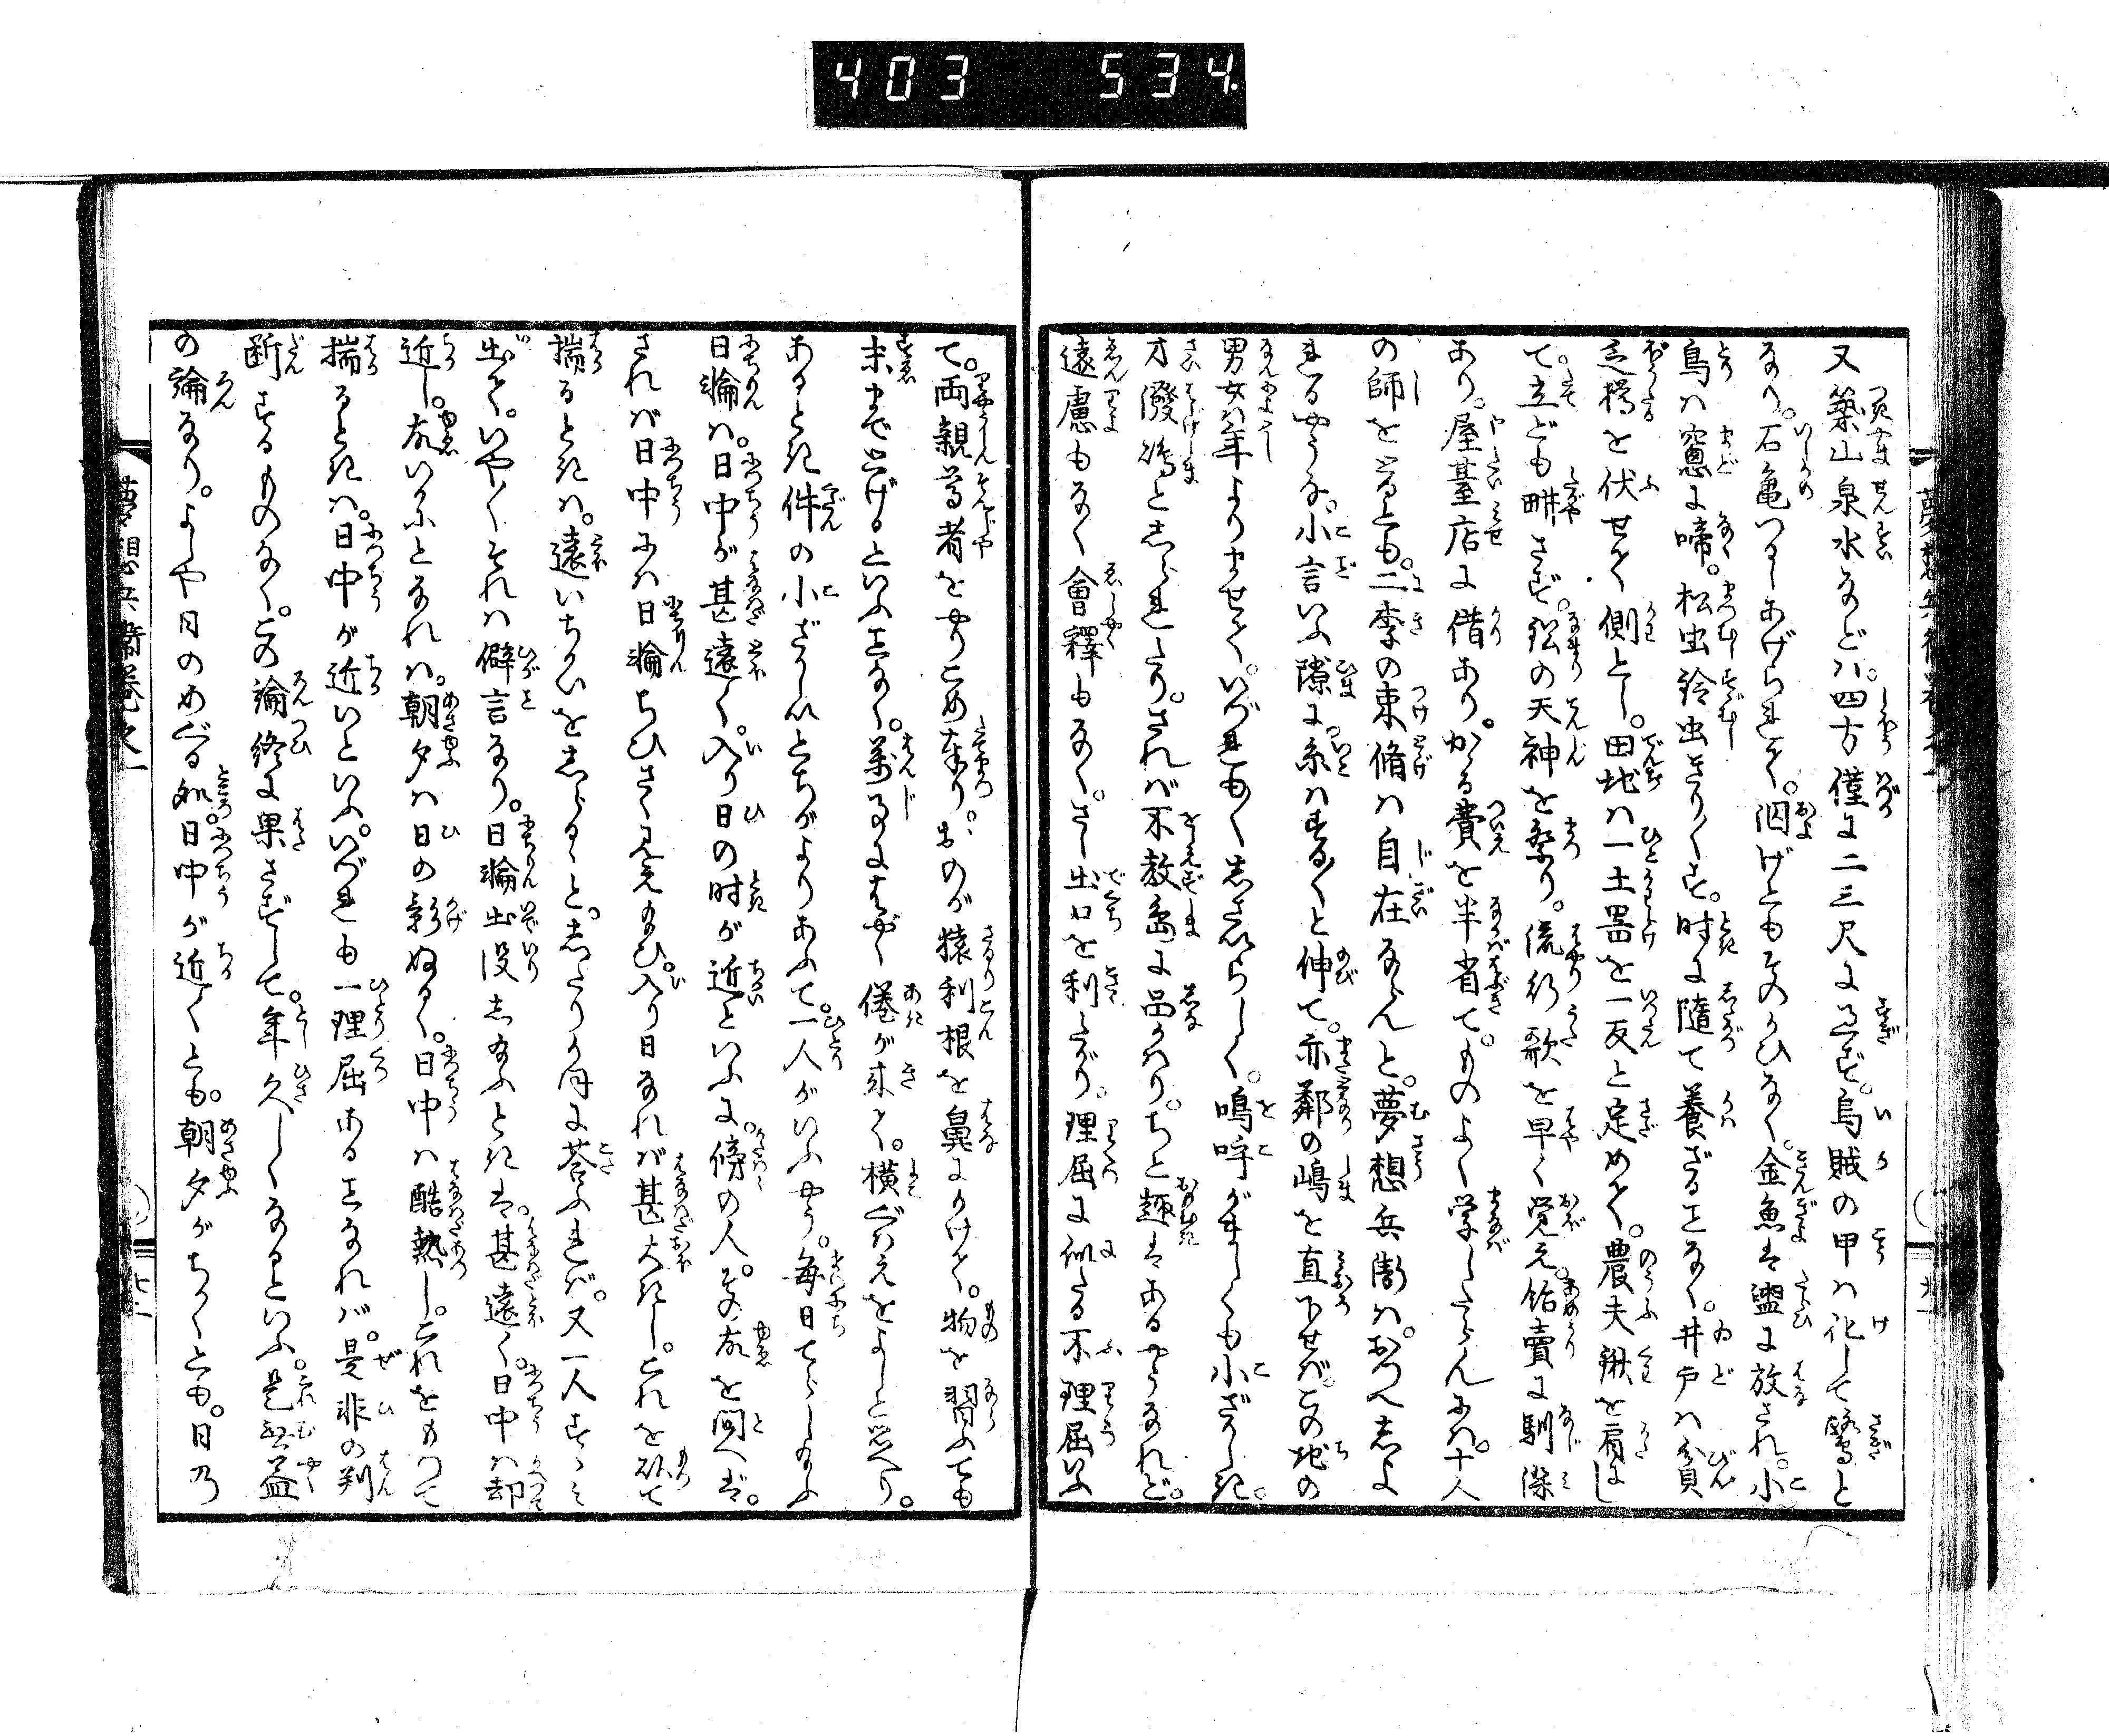 403 534.
又築山泉水などは。四方僅に二三尺に過ず。烏賊の甲は化して鷺と
なり。石亀つるしあげられて。泅げどもそのかひなく。金魚は盥に放され。小
鳥は窓に啼。松虫鈴虫きり〳〵す。時に随て養ざることなく。井戸は貧
乏樽を伏せて側とし。田地は一土器を一反と定めて。農夫鍬を肩にし
て立ども耕さず。鉛の天神を祭り。流行歌を早く覚え。飴賣に馴染
あり。屋臺店に借あり。かゝる費を半省て。ものよく学したらんには。十人
の師をとるとも。二季の束脩は自在ならんと。夢想兵衛は。おつへしよ
れるやうな。小言いふ隙に。糸はする〳〵と伸て。亦鄰の嶋を直下せば。この地の
男女は年よりませて。いづれもよくしさいらしく。嗚呼がましくも小ざかしき。
才溌嶋としられたり。されば不教島に品かはり。ちと趣はあるやうなれど。
遠慮もなく會釋もなく。さし出口を利たがり。理屈に似たる不理屈いふ
て。両親尊者をやりこめ奉り。おのが猿利根を鼻にかけて。物を習ふても
末まで上げるといふことなく。萬事にはやく倦が来て。横ぐはえをよしと覚へり。
あるとき件の小ざかしいどちがよりあふて。一人がいふやう。毎日てらし給ふ
日輪は。日中が甚遠く。入り日の時が近といふに。傍の人。その故を問へば。
されば日中には日輪ちひさく見え給ひ。入り日なれば甚大きし。これを以て
揣るときは。遠いちかいをしらるゝと。したりかほに荅ふれば。又一人すゝみ
出て。いや〳〵それは僻言なり。日輪出没し給ふときは。甚遠く。日中は却
近し。故いかにとなれば。朝夕は日の影ぬるく。日中は酷熱し。これをもつて
揣るときは。日中が近いといふ。いづれも一理屈あることなれば。是非の判
断するものなく。この論終に果さずして。年久しくなるといふ。是無益
の論なり。よしや日のめぐる処。日中が近くとも。朝夕がちかくとも。日乃
夢想兵衛巻之一